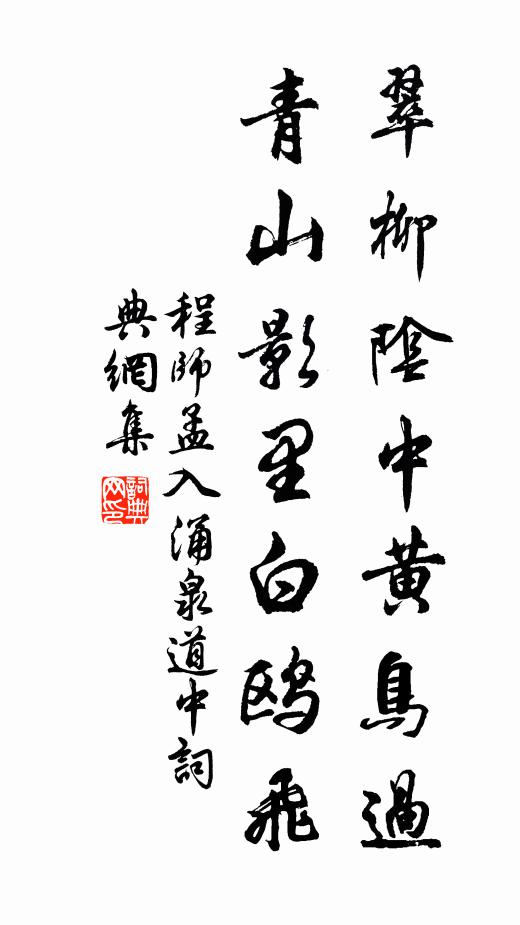 翠柳陰中黃鳥過
青山影里白鷗飛
程師孟入涌泉道中詞
典網集
詞典
网印